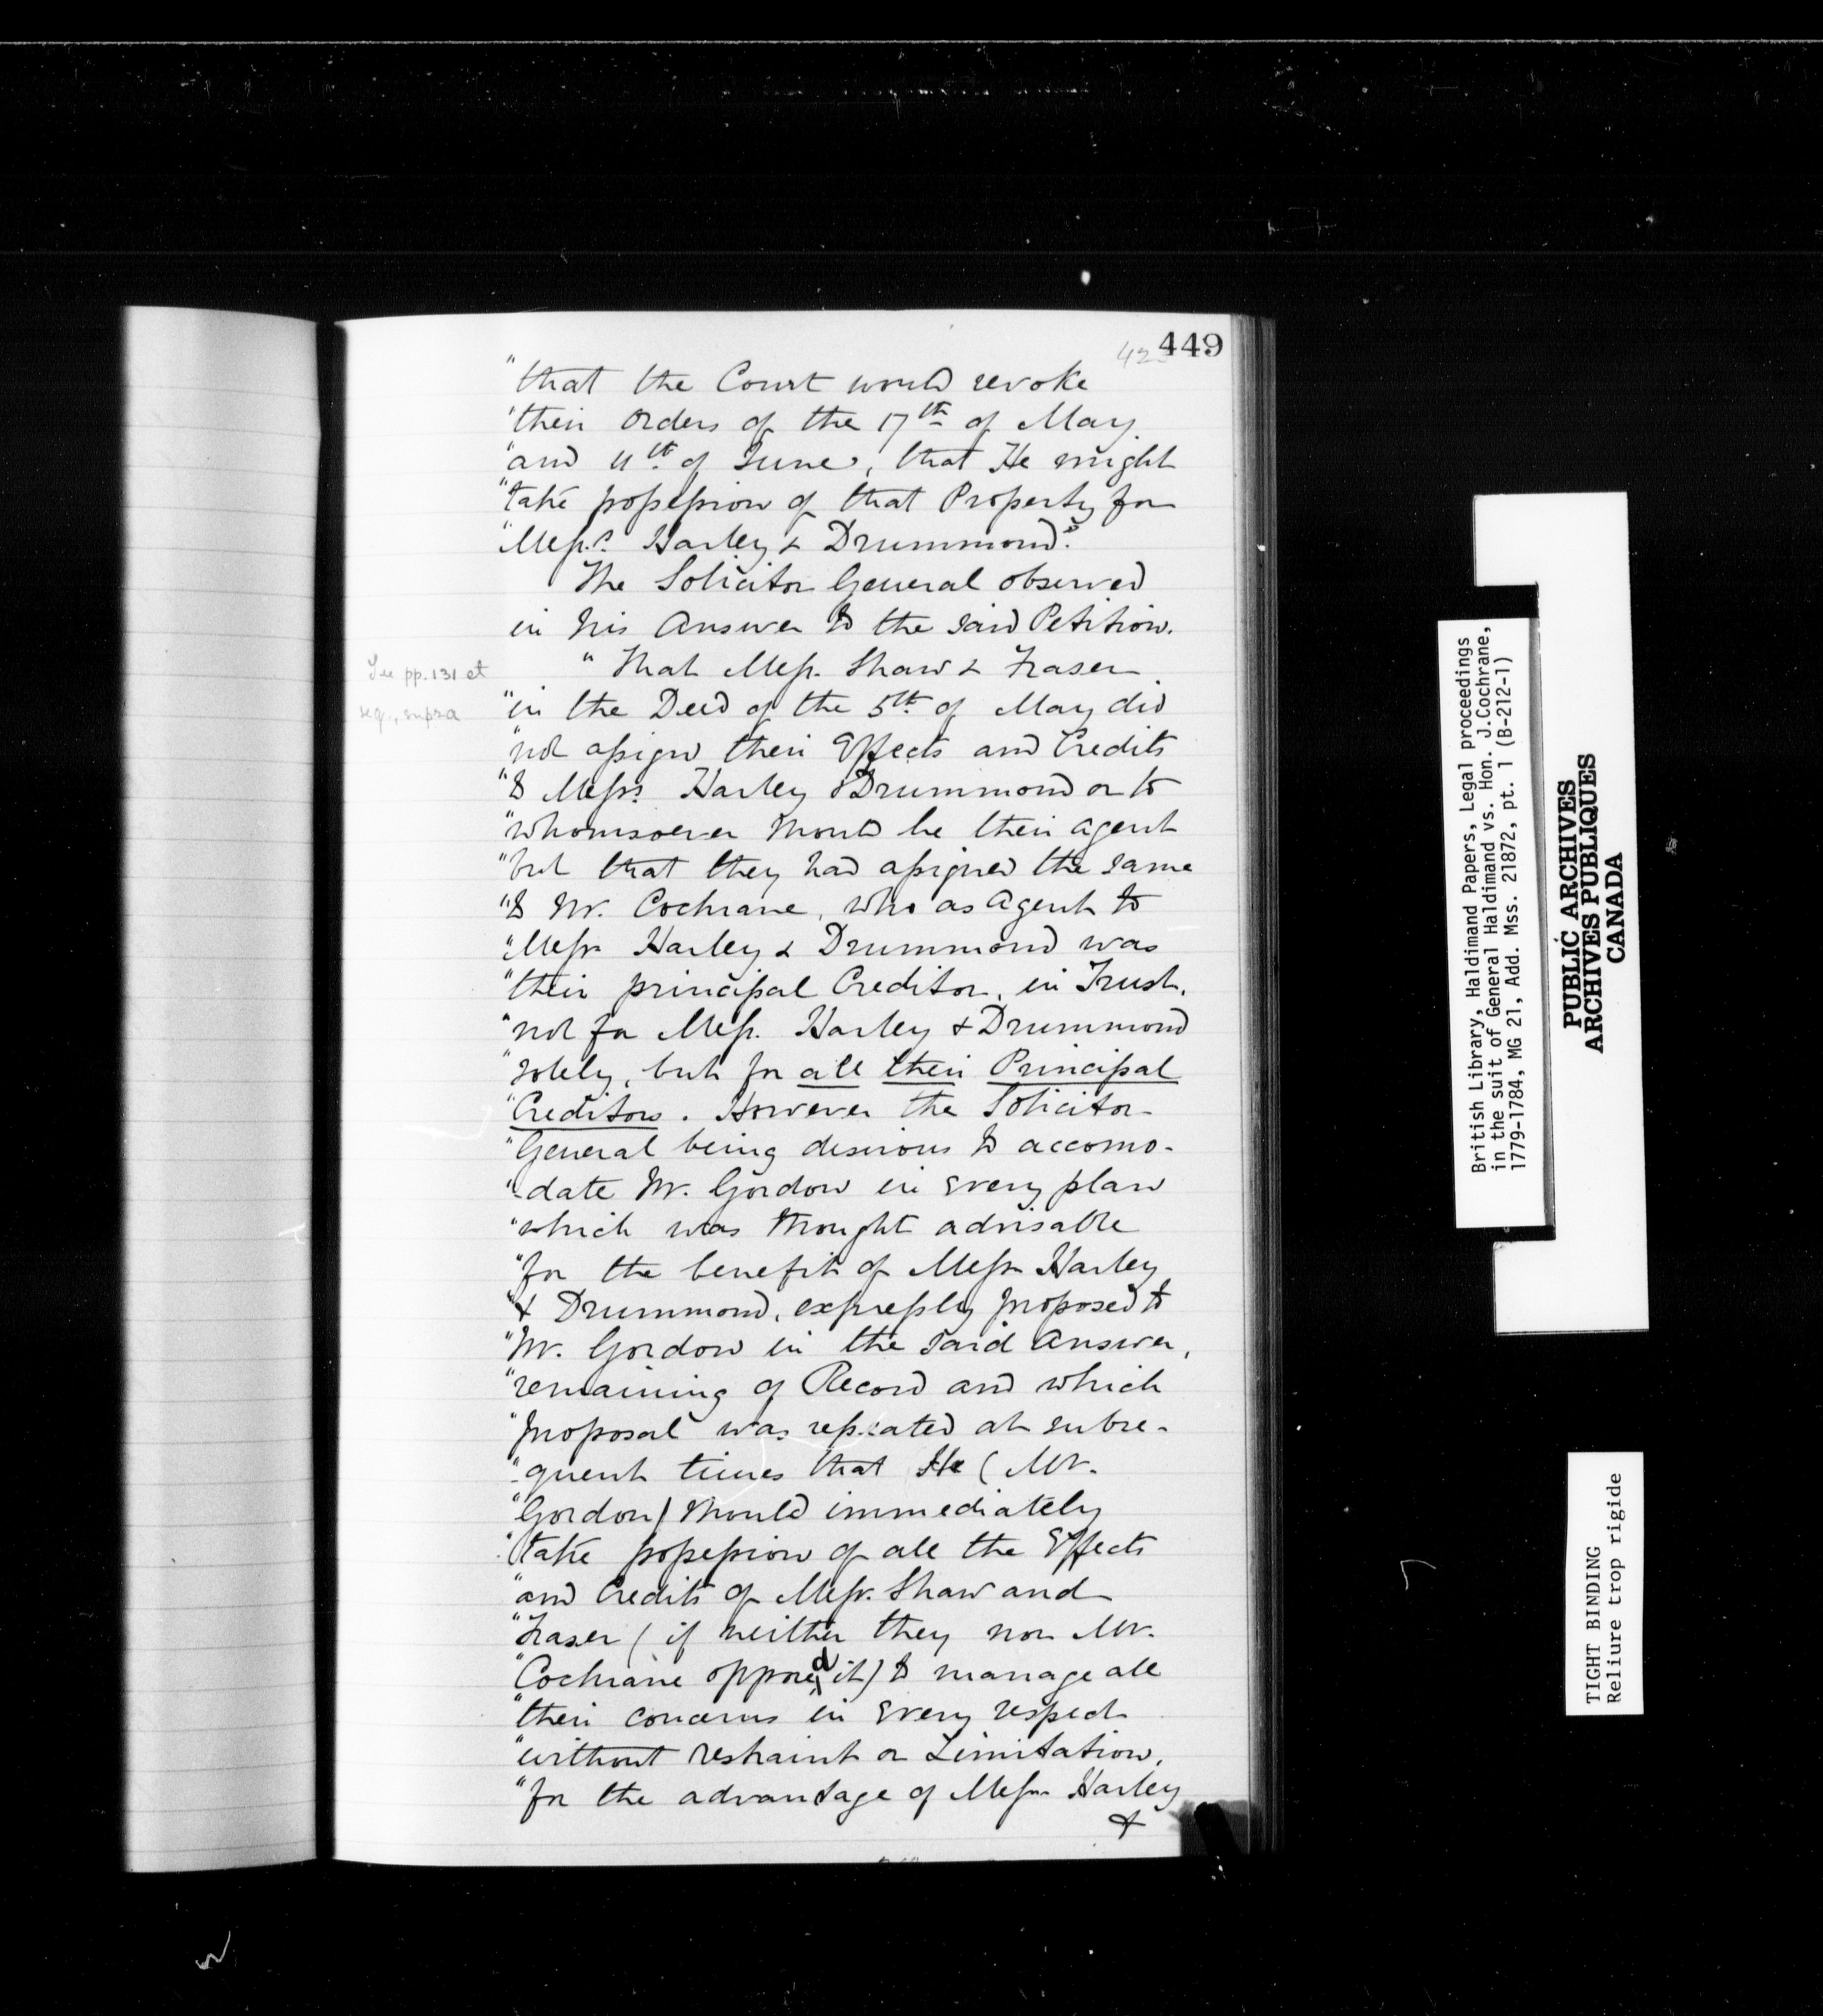 449
"that the Court would revoke
"their Orders of the 17th of May
"and 11th of June, that He might
"take possession of that Property for
"Messrs. Harley & Drummond."
The Solicitor General observed
in his Answer to the said Petition.
"That Mess. Shaw & Fraser
See pp. 131 et
seq., supra
"in the Deed of the 5th of May did
"not assign their Effects and Credits
"to Messrs. Harley & Drummond or to
"whomsoever should be their agent
"but that they had assigned the same
"to Mr. Cochrane, who as Agent to
"Messrs Harley & Drummond was
"their principal Creditor, in Trust,
"not for Mess. Harley & Drummond
"solely, but for all their Principal
"Creditors. However the Solicitor
"General being desirous to accomo-
"-date Mr. Gordon in every plan
"which was thought advisable
"for the benefit of Messrs Harley
"& Drummond, expressly proposed to
"Mr. Gordon in the said Answer,
"remaining of Record and which
"proposal was repeated at subse-
"-quent times that He (Mr.
"Gordon) should immediately
"take possession of all the Effects
"and Credits of Messr. Shaw and
"Fraser (if neither they nor Mr.
"Cochrane opposed it) to manage all
"their concerns in every respect
"without restraint or Limitation,
"for the advantage of Messrs Harley
&
British Library, Haldimand Papers, Legal proceedings
in the suit of General Haldimand vs. Hon. J.Cochrane,
1779-1784, MG 21, Add. Mss. 21872, pt. 1 (B-212-1)
PUBLIC ARCHIVES
ARCHIVES PUBLIQUES
CANADA
TIGHT BINDING
Reliure trop rigide